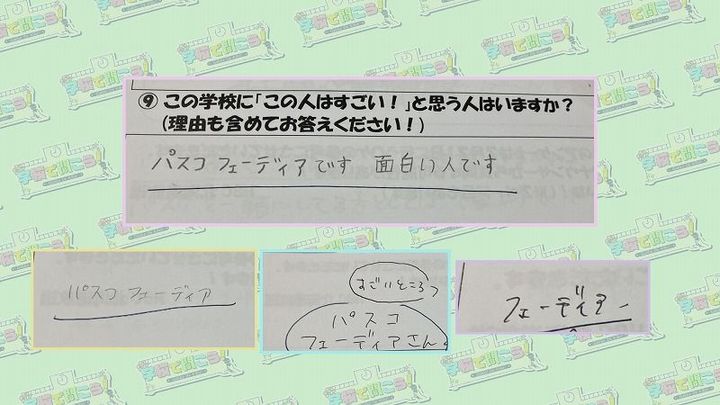 ⑨ この学校に「この人はすごい！」と思う人はいますか？
(理由も含めてお答えください！)
パスコ フェーディアです 面白い人です
パスコ フェーディア
すごいところ
パスコ
フェーディアさん
フェーディアー